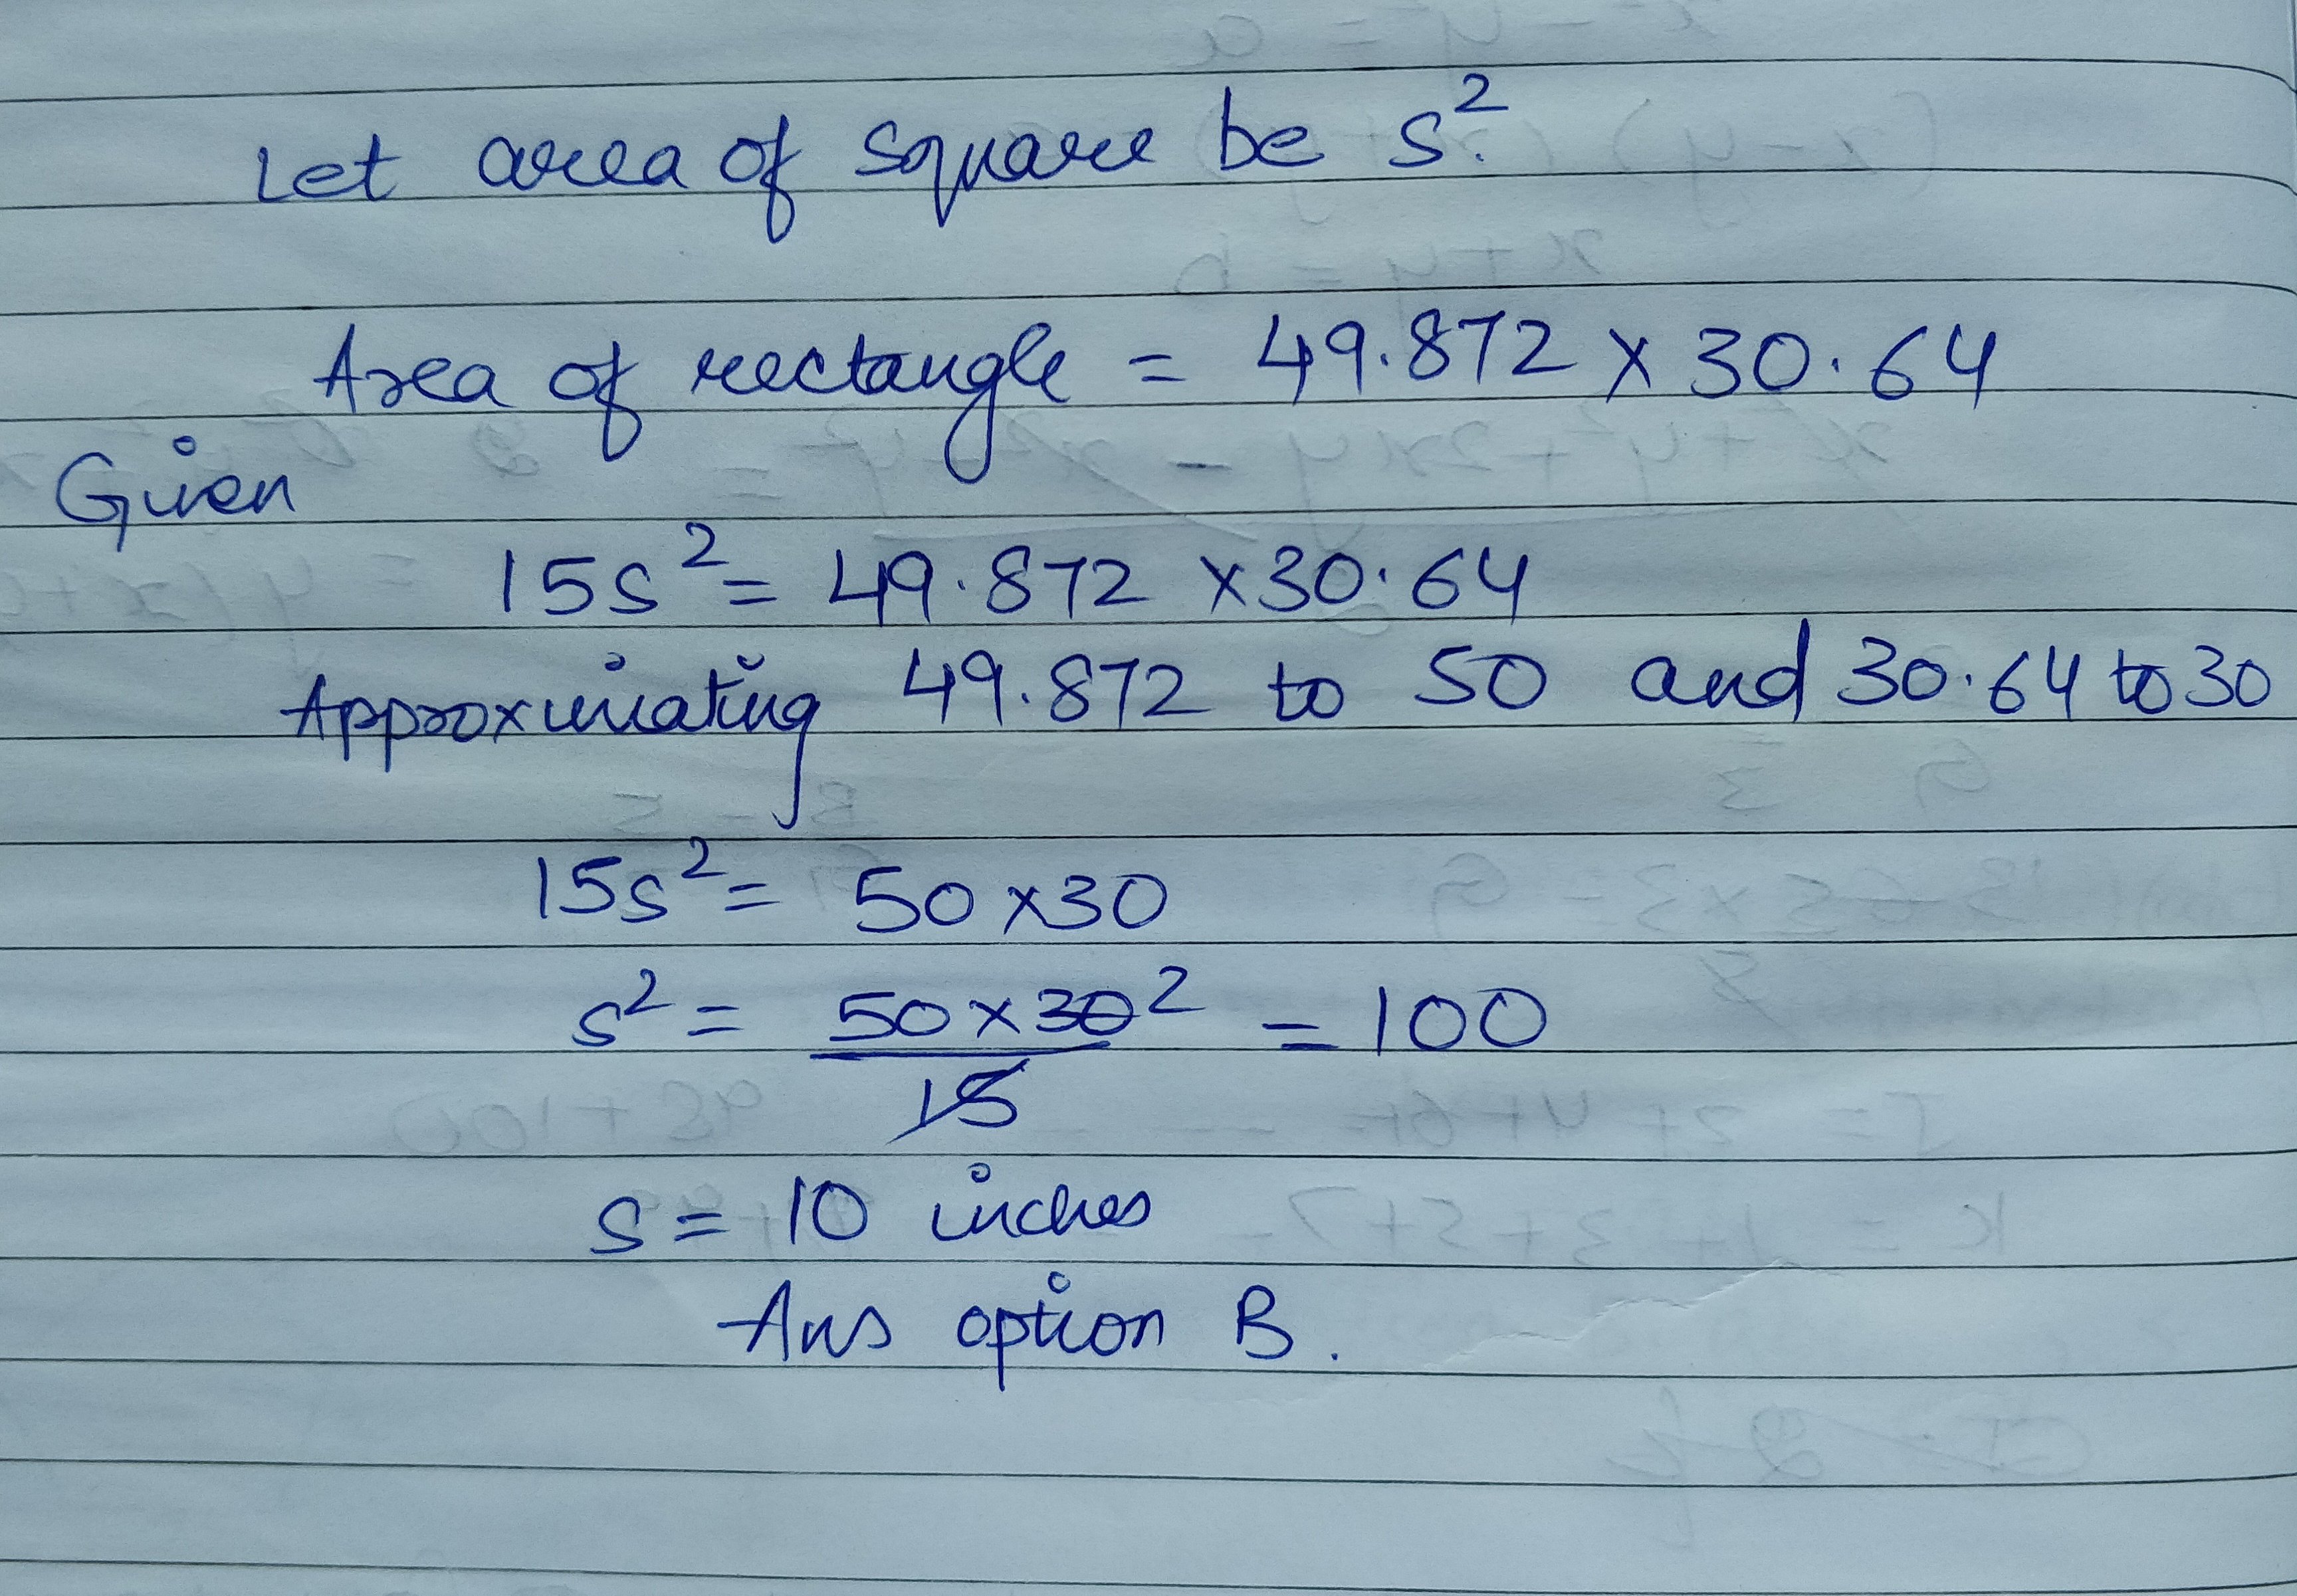 Let area of square be s².
Area of rectangle = 49.872 × 30.64
Given
15s² = 49.872 × 30.64
Approximating 49.872 to 50 and 30.64 to 30
15s² = 50 × 30
s² = 50 × 30 2 = 100
15
s = 10 inches
Ans option B.